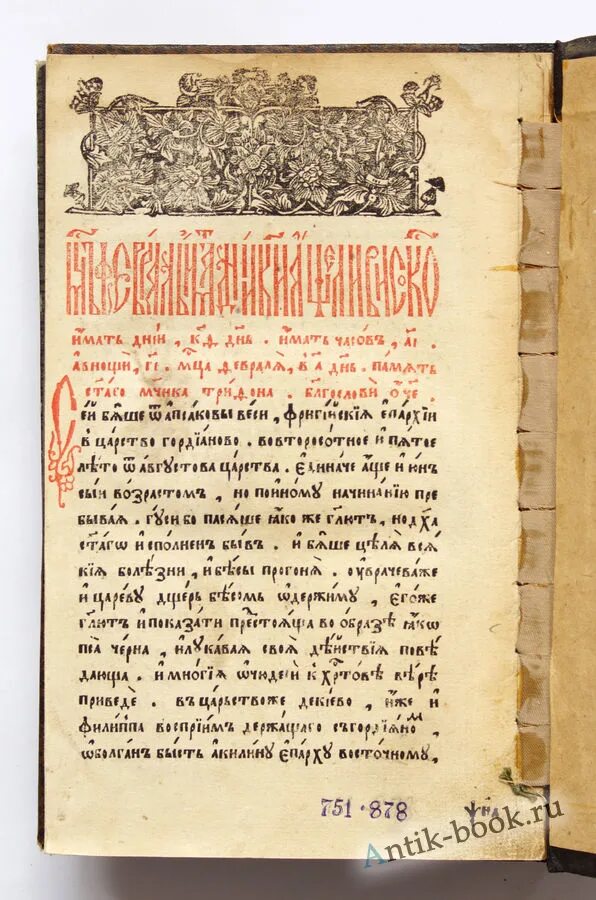 имать дні́й , ки҃ дн҃ь . и҆мать часовъ , а҃і .
а҆в нощи́й , г҃і . мц҃а февраля , в а҃ дн҃ь . память
ст҃аго мч҃ника трифона . бл҃гослови ѻ҆́ч҃е .
Сей бѧше ѿ апсаковы веси , фригі́йскїѧ є҆пархїи
в царство гордїаново . во второе сотное и҆ пѧтое
лѣто ѿ августова царства . є҆дїначе аще и҆ юнъ
сый возрастомъ , но по и҆ному начинанїю пре
бываѧ . гуси бо пасѧше ꙗ҆ко же гл҃ютъ , но дх҃а
ст҃аго и҆сполненъ бывъ . и҆ бѧше цѣлѧ всѧ
кїѧ болѣзни , и҆ бѣсы прогонѧ . оу҆врачева же
и҆ цареву дщерь бѣсомъ ѡ҆держиму , є҆го же
гл҃ютъ и҆ показати пре́стоѧща во ѻ҆бразѣ ꙗ҆ко
пса черна , и҆ лукаваѧ своѧ дѣйствїѧ повѣ
дающа . и҆ многїѧ ѡ҆ чюдеси к хр҃товѣ вѣрѣ
приведе . въ царьство же декїево , и҆же и҆
филиппа воспрїимъ держащаго съ гордїѧномъ
ѡ҆болганъ бысть акилину є҆парху восточному ,
751-878
Antik-book.ru